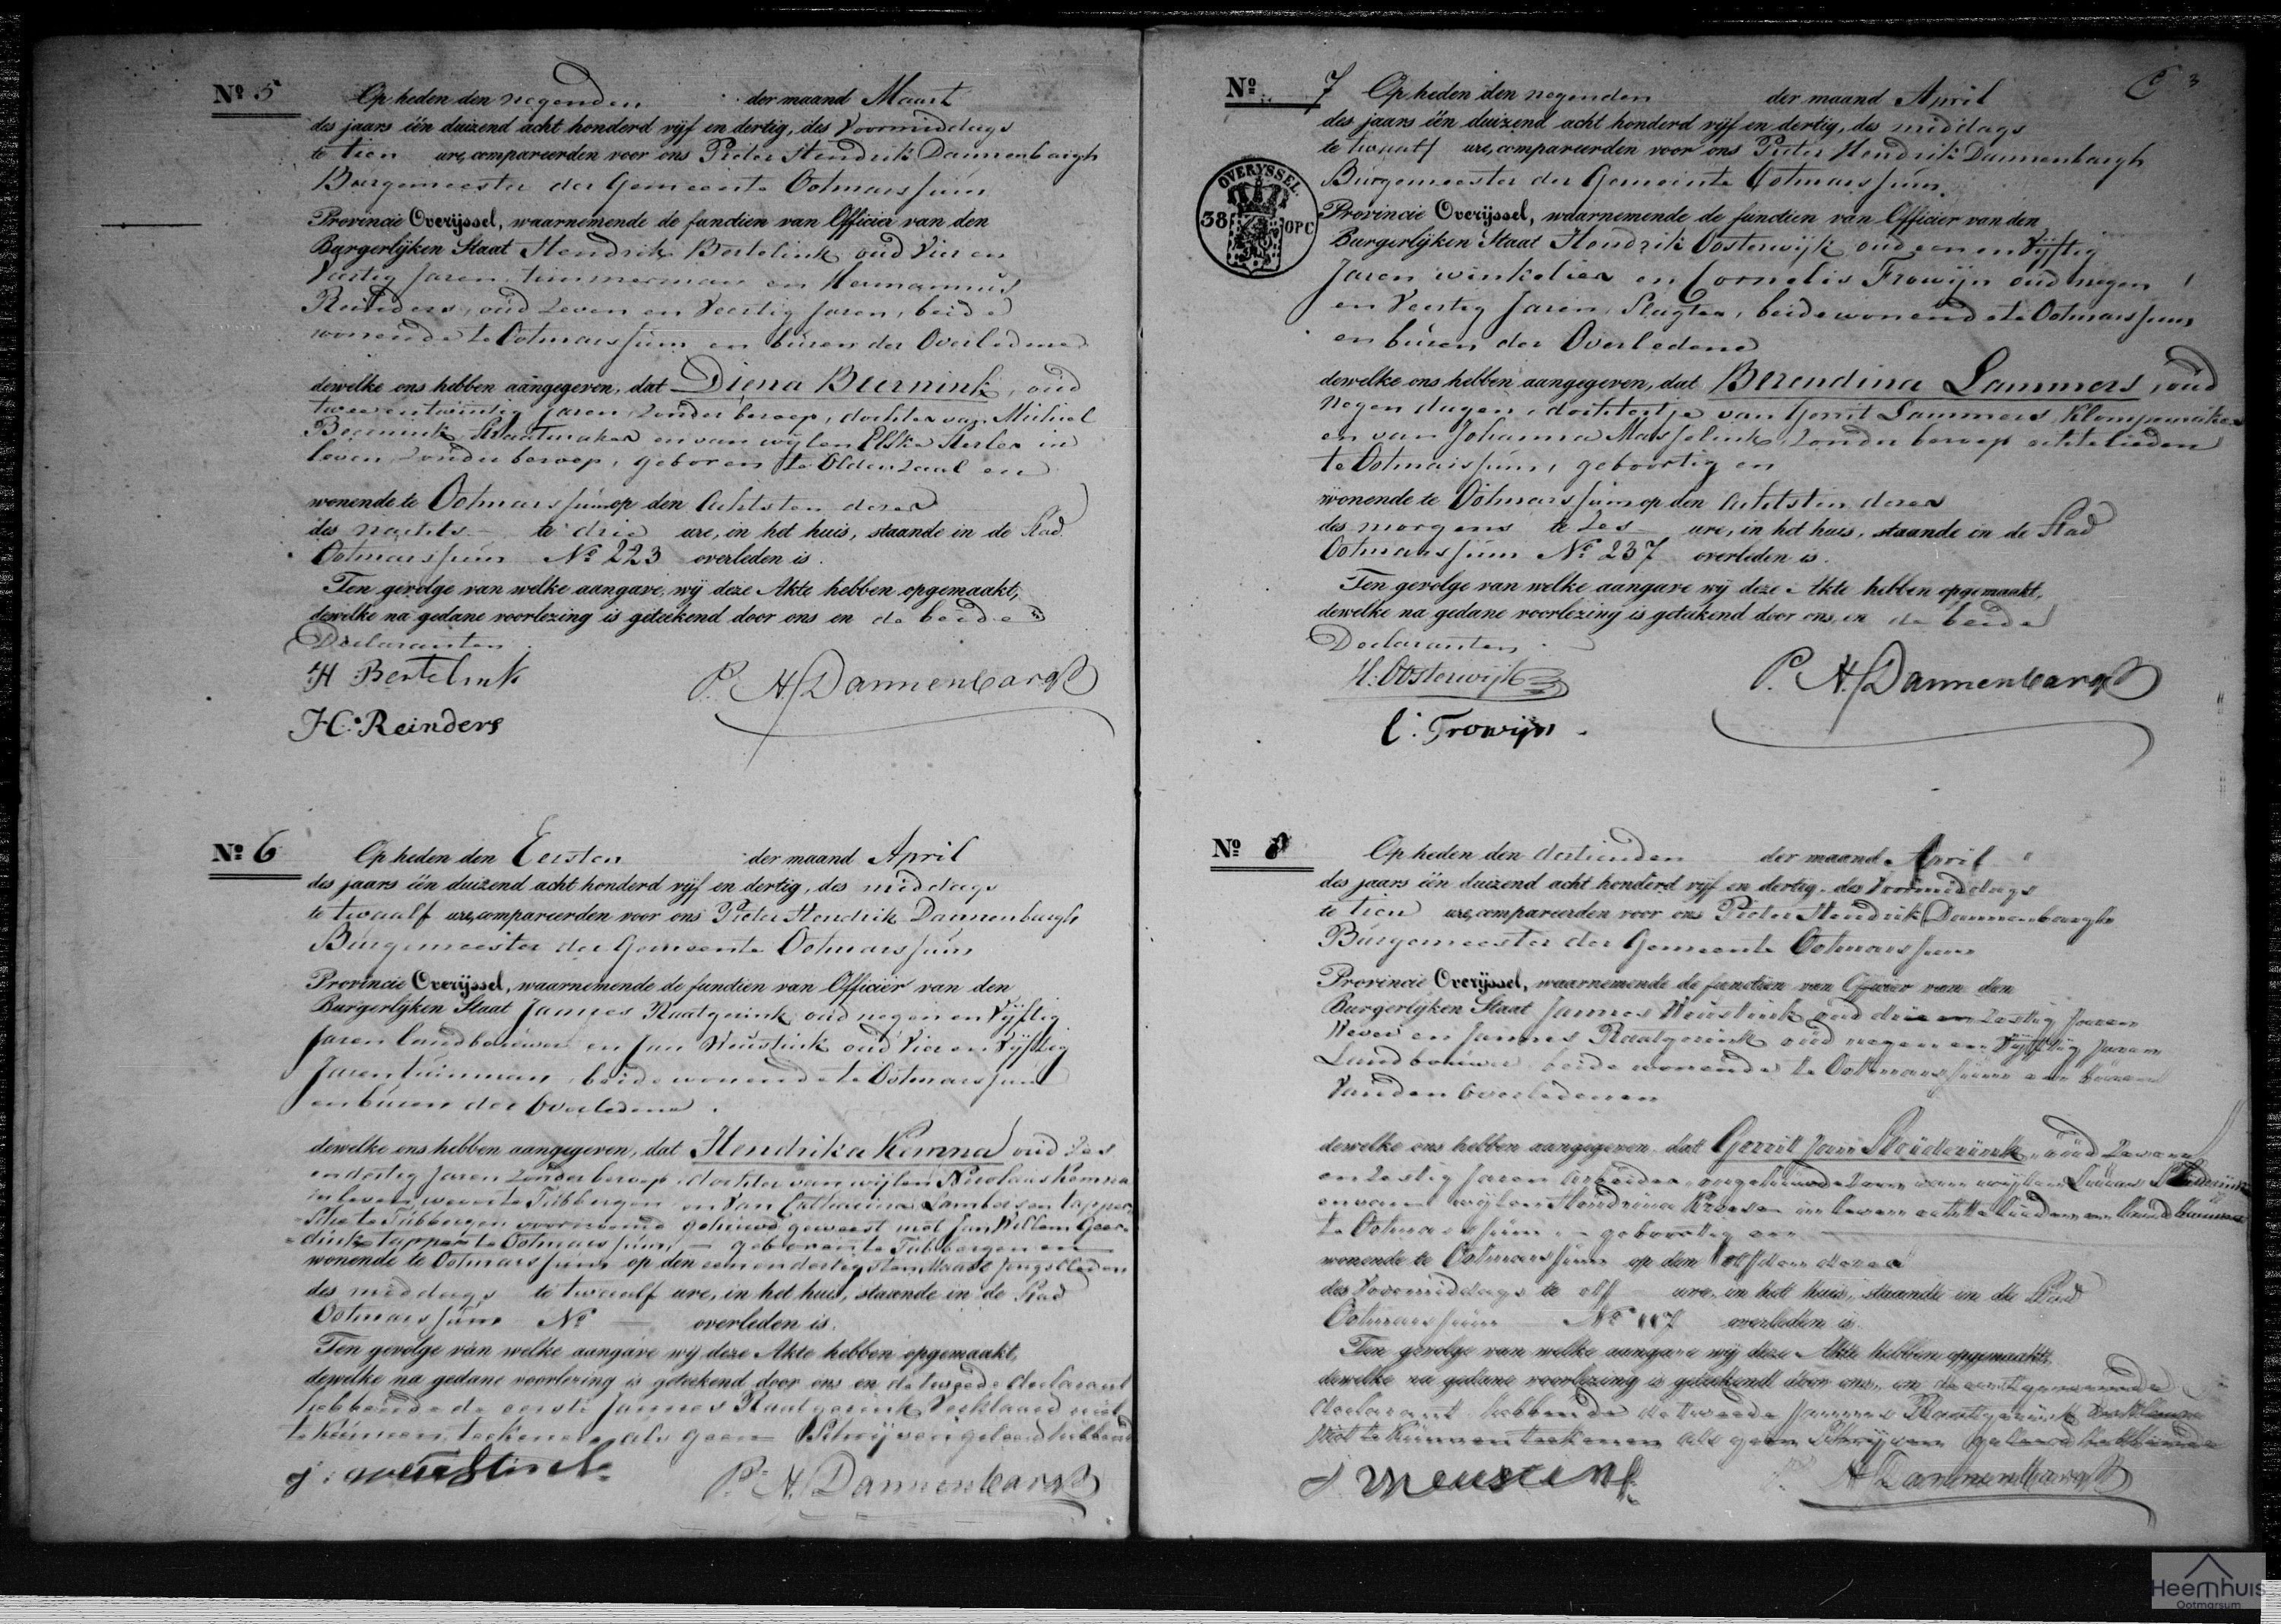 Nº 5 Op heden den negenden der maand Maart
des jaars één duizend acht honderd vijf en dertig, des Voormiddags
te tien ure, compareerden voor ons Pieter Hendrik Dannenbargh
Burgemeester der Gemeente Ootmarssum
Provincie Overijssel, waarnemende de functien van Officier van den
Burgerlijken Staat Hendrik Bertelink oud Vier en
Veertig Jaren timmerman en Hermannus
Reinders, oud Zeven en Veertig Jaren, beide
wonende te Ootmarssum en buren der Overledene
dewelke ons hebben aangegeven, dat Diena Beernink, oud
twee en twintig Jaren zonder beroep, dochter van Michiel
Beernink Straatmaker en van wijlen Elske in
leven zonder beroep, geboren te Oldenzaal en
wonende te Ootmarssum op den Achtsten dezer
des nachts te drie ure, in het huis, staande in de Stad
Ootmarssum Nº 223 overleden is.
Ten gevolge van welke aangave, wij deze Akte hebben opgemaakt,
dewelke na gedane voorlezing is geteekend door ons en de beide
Declaranten.
H Bertelink P. H. Dannenbargh
H. Reinders
Nº 6 Op heden den Eersten der maand April
des jaars één duizend acht honderd vijf en dertig, des middags
te twaalf ure, compareerden voor ons Pieter Hendrik Dannenbargh
Burgemeester der Gemeente Ootmarssum
Provincie Overijssel, waarnemende de functien van Officier van den
Burgerlijken Staat Jannes Raatgerink oud negen en Vijftig
Jaren landbouwer en Jan Weustink oud Vier en Vijftig
Jaren tuinman beide wonende te Ootmarssum
en buren der Overledene.
dewelke ons hebben aangegeven, dat Hendrika Kemna oud Zes
en dertig Jaren zonder beroep, dochter van wijlen Nicolaus Kemna
in leven te Tubbergen en Van Catharina Lambersen tapper-
sche te Tubbergen voornoemd gehuwd geweest met Jan Willem Geer-
dink tapper te Ootmarssum, geboren te Tubbergen en
wonende te Ootmarssum op den een en dertigsten Maart Jongstleden
des middags te twaalf ure, in het huis, staande in de Stad
Ootmarssum Nº — overleden is.
Ten gevolge van welke aangave wij deze Akte hebben opgemaakt,
dewelke na gedane voorlezing is geteekend door ons en de tweede declarant
hebbende de eerste Jannes Raatgerink Verklaard niet
te kunnen teekenen als geen Schrijven geleerd hebbende
J. Weustink P. H. Dannenbargh
3
Nº 7 Op heden den negenden der maand April
des jaars één duizend acht honderd vijf en dertig, des middags
te twaalf ure, compareerden voor ons Pieter Hendrik Dannenbargh
Burgemeester der Gemeente Ootmarssum
OVERYSSEL.
38 OPC
Provincie Overijssel, waarnemende de functien van Officier van den
Burgerlijken Staat Hendrik Oosterwijk oud een en Vijftig
Jaren winkelier en Cornelis Frowijn oud negen
en Veertig Jaren, Slagter, beide wonende te Ootmarssum
en buren der Overledene
dewelke ons hebben aangegeven, dat Berendina Lammers, oud
Negen dagen, dochtertje van Gerrit Lammers Klompemaker
en van Johanna Masselink, zonder beroep echtelieden
te Ootmarssum, geboortig en
wonende te Ootmarssum op den Achtsten dezer
des morgens te Zes ure, in het huis, staande in de Stad
Ootmarssum Nº 237 overleden is.
Ten gevolge van welke aangave wij deze Akte hebben opgemaakt,
dewelke na gedane voorlezing is geteekend door ons, en de beide
Declaranten.
H. Oosterwijk P. H. Dannenbargh
C. Frowijn.
Nº 8 Op heden den dertienden der maand April
des jaars één duizend acht honderd vijf en dertig, des Voormiddags
te tien ure, compareerden voor ons Pieter Hendrik Dannenbargh
Burgemeester der Gemeente Ootmarssum
Provincie Overijssel, waarnemende de functien van Officier van den
Burgerlijken Staat Jannes Weustink oud drie en Zestig Jaren
Wever en Jannes Raatgerink oud negen en Vijftig Jaren
Landbouwer beide wonende te Ootmarssum en buren
Van den Overledenen
dewelke ons hebben aangegeven, dat Gerrit Jan oud Zeven
en Zestig Jaren Arbeider, ongehuwde Zoon van wijlen
en van wijlen Hendrina in leven echtelieden en
te Ootmarssum, geboortig en
wonende te Ootmarssum op den elfden dezer
des Voormiddags te elf ure, in het huis, staande in de Stad
Ootmarssum Nº 117 overleden is.
Ten gevolge van welke aangave wij deze Akte hebben opgemaakt,
dewelke na gedane voorlezing is geteekend door ons, en de eerstgenoemde
declarant hebbende de tweede Jannes Raatgerink verklaard
Niet te kunnen teekenen als geen Schrijven geleerd hebbende
J Weustink P. H Dannenbargh
Heemhuis
Ootmarsum